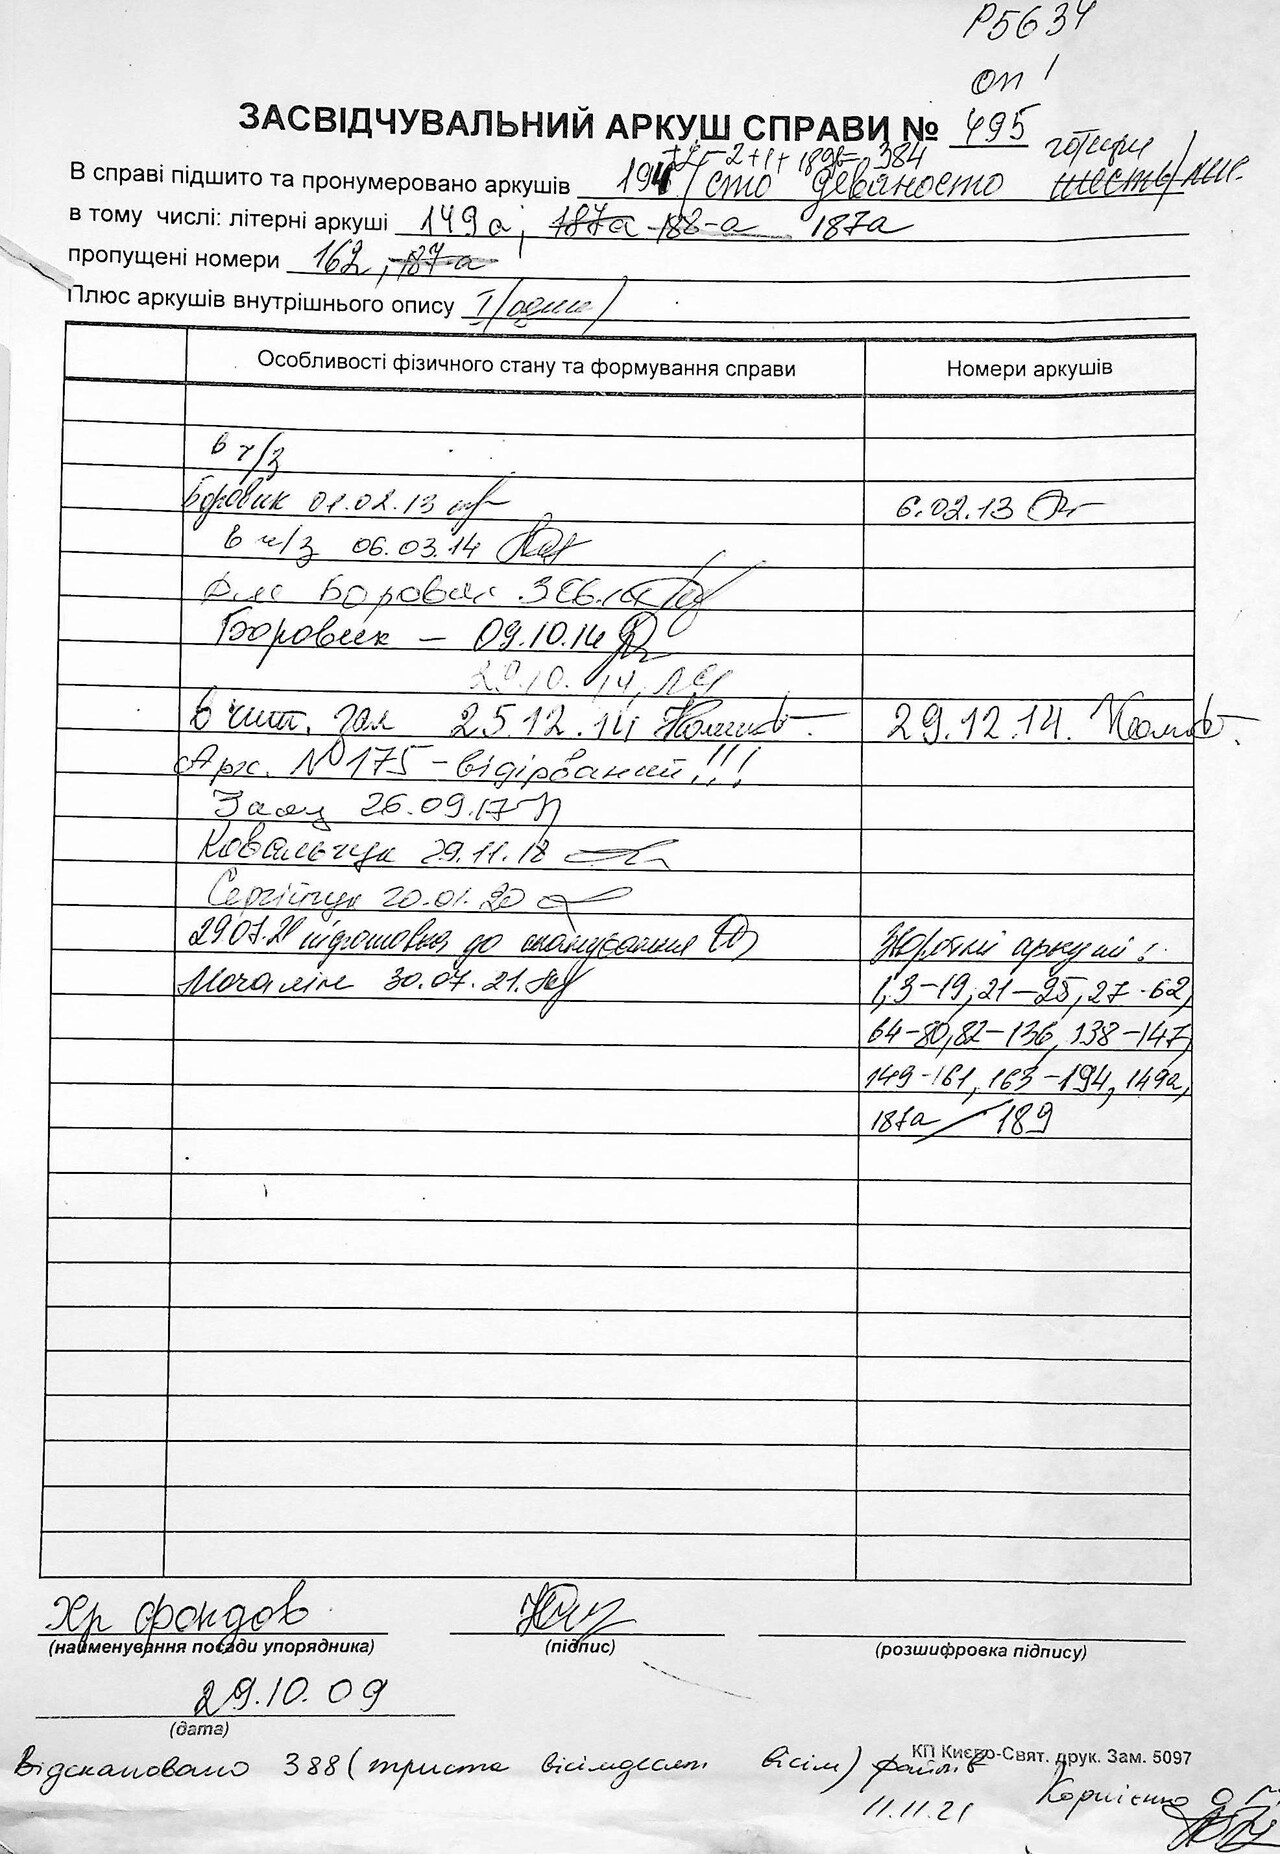 Р5634
оп 1
ЗАСВІДЧУВАЛЬНИЙ АРКУШ СПРАВИ № 495
-2+1+189= 384
В справі підшито та пронумеровано аркушів 194 (сто девяносто чотири шесть)
в тому числі: літерні аркуші 149а; 187а 188-а 187а
пропущені номери 162, 187-а
Плюс аркушів внутрішнього опису 1 (один)
Особливості фізичного стану та формування справи Номери аркушів
в ч/з
Боровик 01.02.13 6.02.13
в ч/з 06.03.14
Боровик
Боровик – 09.10.14
29.10.14
в чит. зал 25.12.14 29.12.14.
Арк. №175 – відірваний!!!
Заяц 26.09.17
Ковальчук 29.11.18
Сергійчук 20.01.20
29.07.21 підготовка до сканування Зворотні аркуші:
Мочалін 30.07.21. 1,3-19, 21-25, 27-62,
64-80, 82-136, 138-147,
149-161, 163-194, 149а,
187а 189
Хр фондов
(найменування посади упорядника) (підпис) (розшифровка підпису)
29.10.09
(дата)
КП Києво-Свят. друк. Зам. 5097
Відскановано 388 (триста вісімдесят вісім) файлів
11.11.21 Корнієнко